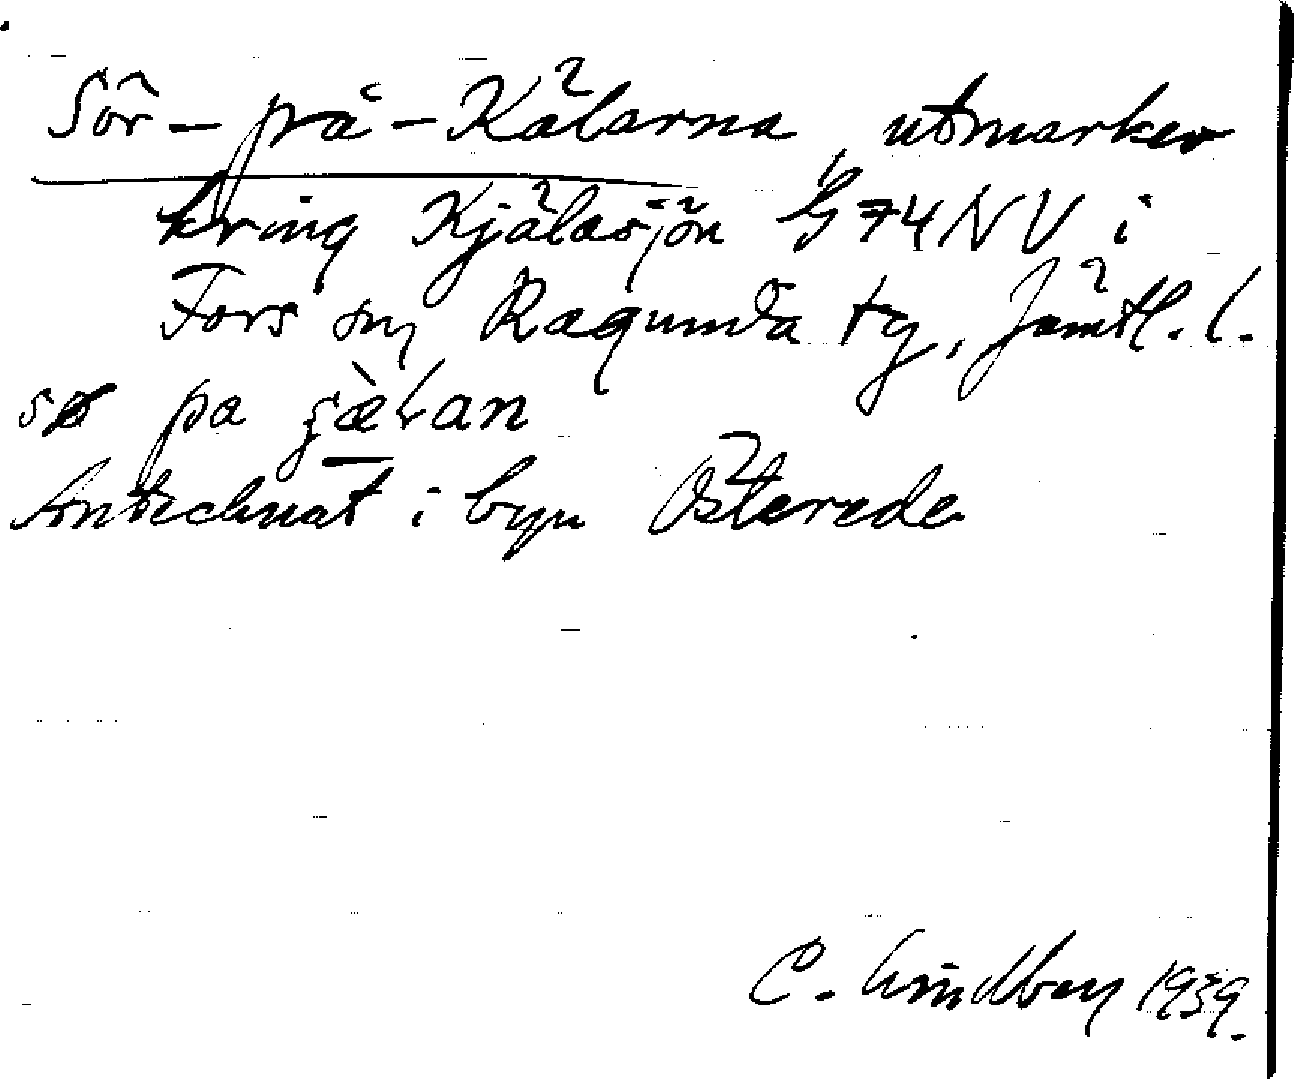 Sör-på-Kälarna, utmarker
kring Kjälasjön G 74 NV i
Fors sn, Ragunda tg, Jämtl. l.
sø pa ʂæ̀lan
Antecknat i byn Österede
C. Lindberg 1939.